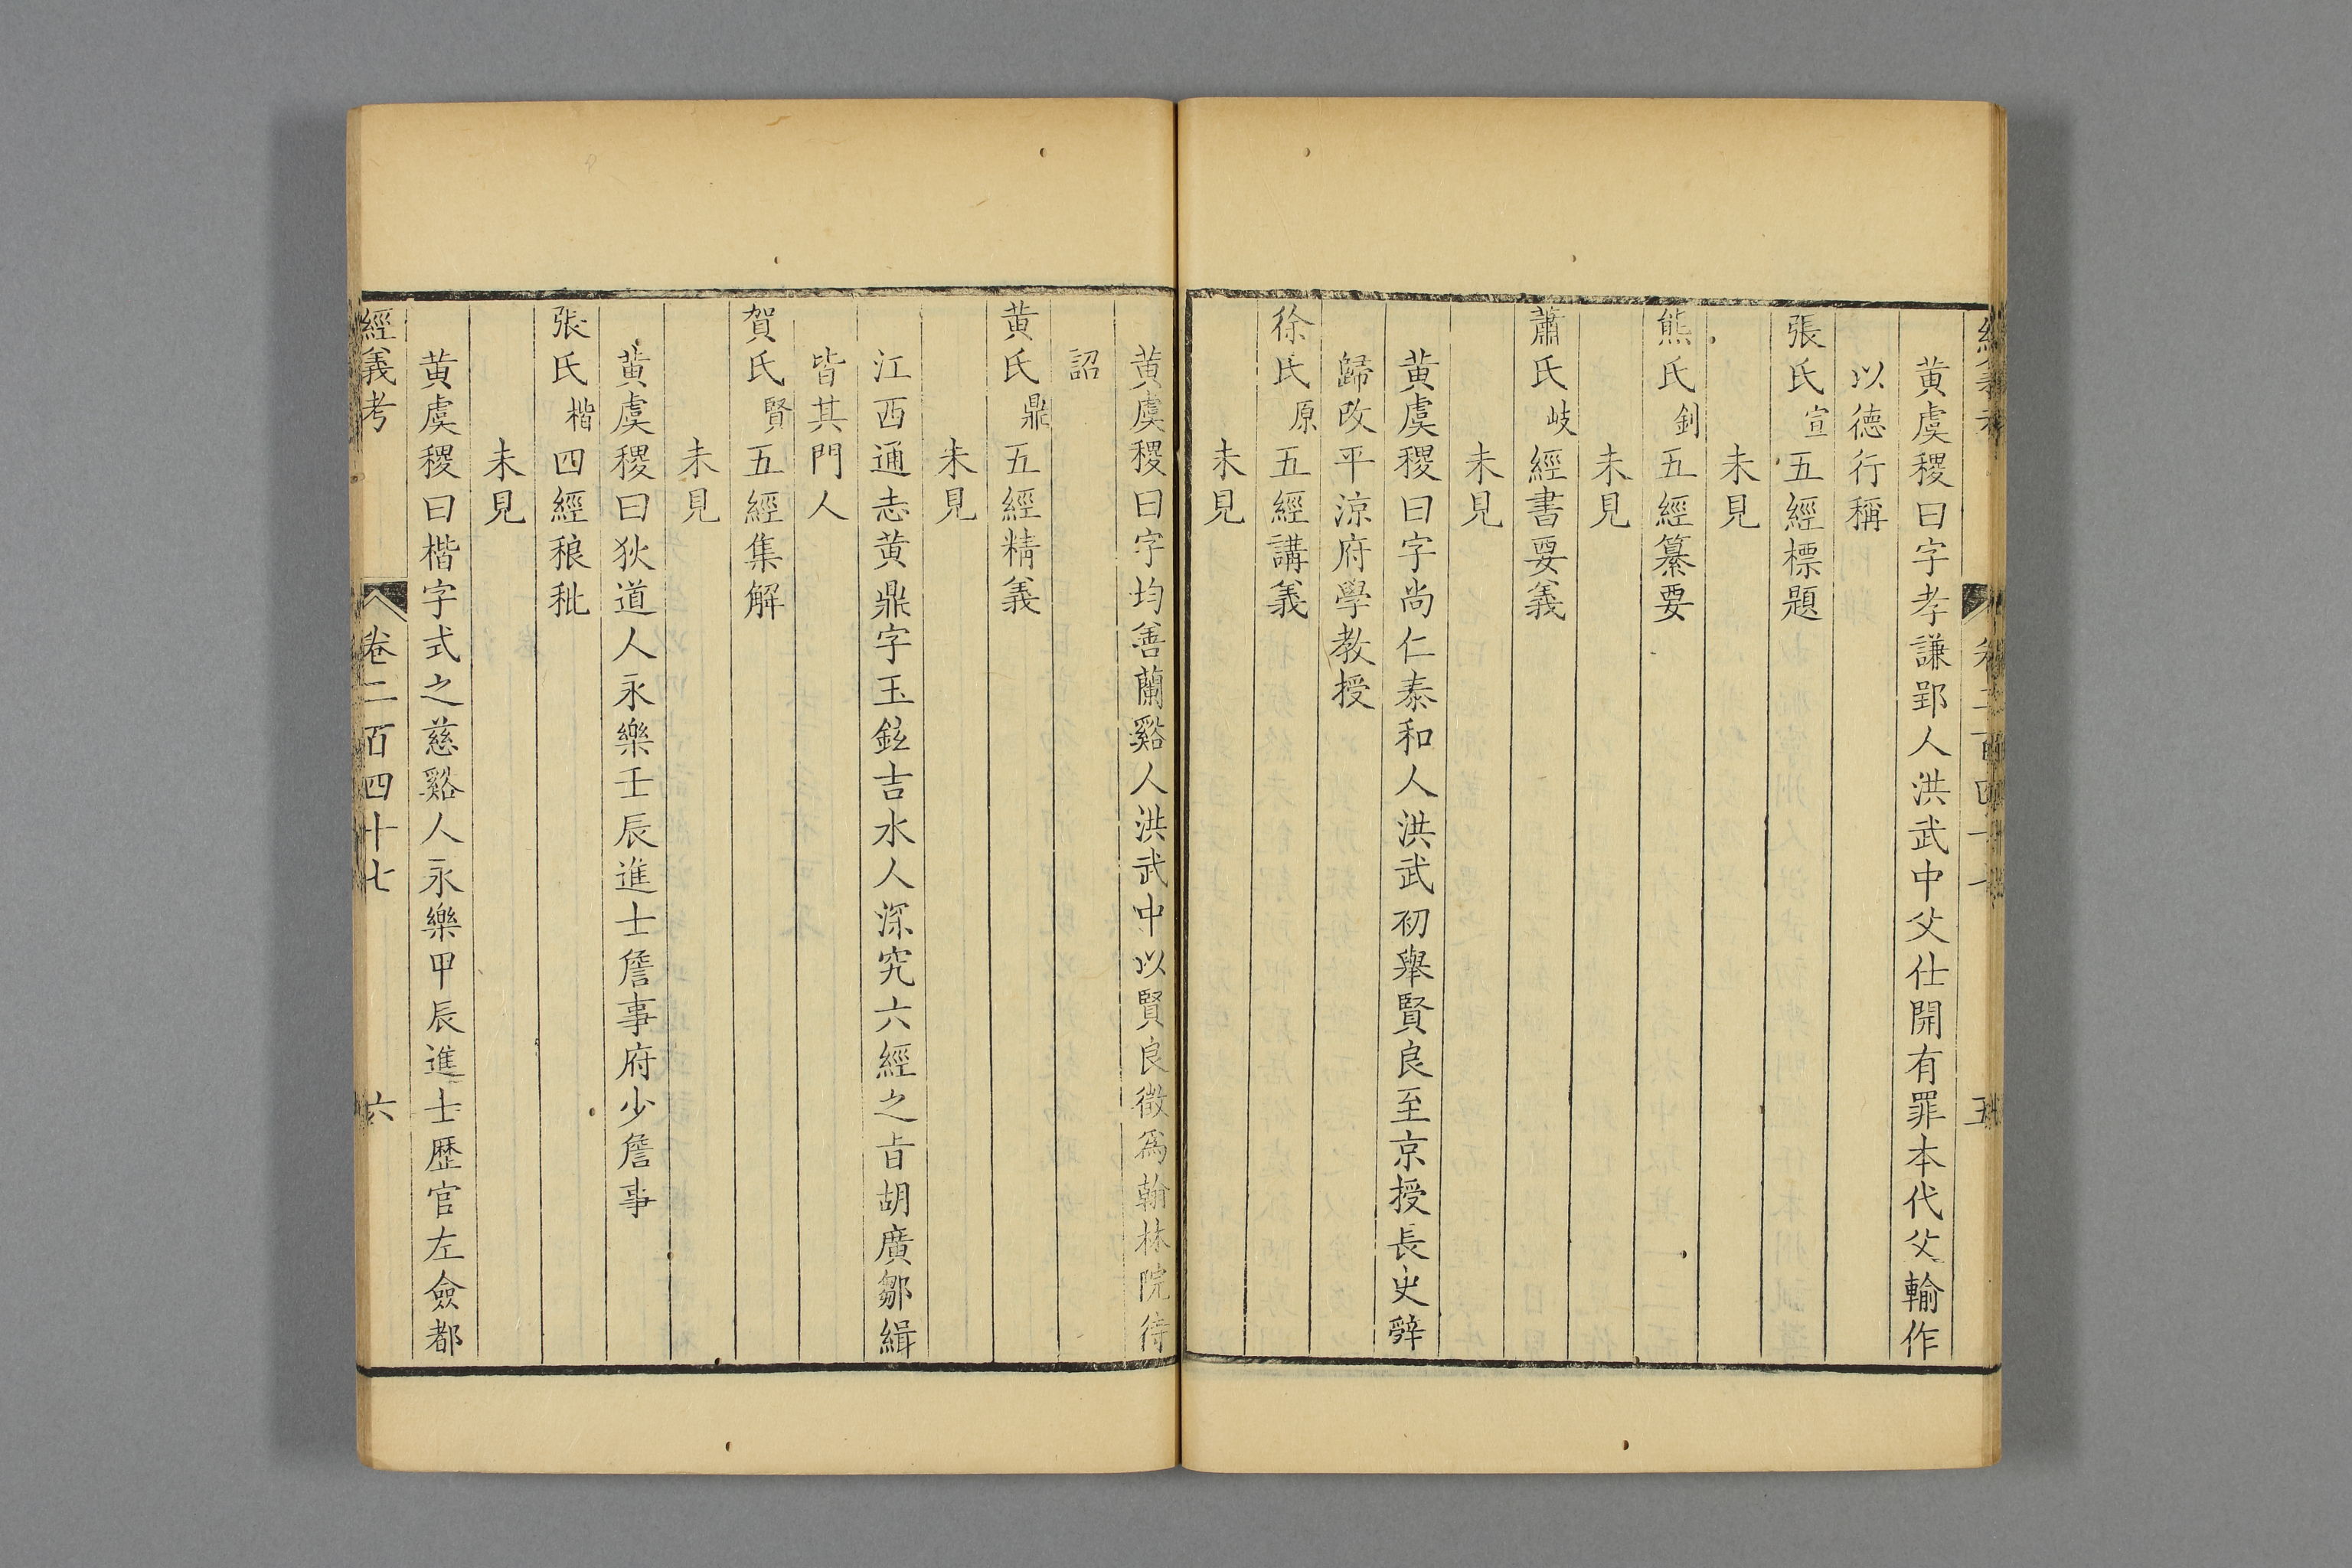 經義考 卷二百四十七 五
黄虞稷曰字孝謙郢人洪武中父仕開有罪本代父輸作
以德行稱
張氏宣五經標題
未見
熊氏釗五經纂要
未見
蕭氏岐經書要義
未見
黄虞稷曰字尚仁泰和人洪武初舉賢良至京授長史辤
歸改平涼府學教授
徐氏原五經講義
未見
黄虞稷曰字均善蘭谿人洪武中以賢良徵爲翰林院待
詔
黄氏鼎五經精義
未見
江西通志黄鼎字玉鉉吉水人深究六經之旨胡廣鄒緝
皆其門人
賀氏賢五經集解
未見
黄虞稷曰狄道人永樂壬辰進士詹事府少詹事
張氏楷四經稂秕
未見
黄虞稷曰楷字式之慈谿人永樂甲辰進士歴官左僉都
經義考 卷二百四十七 六